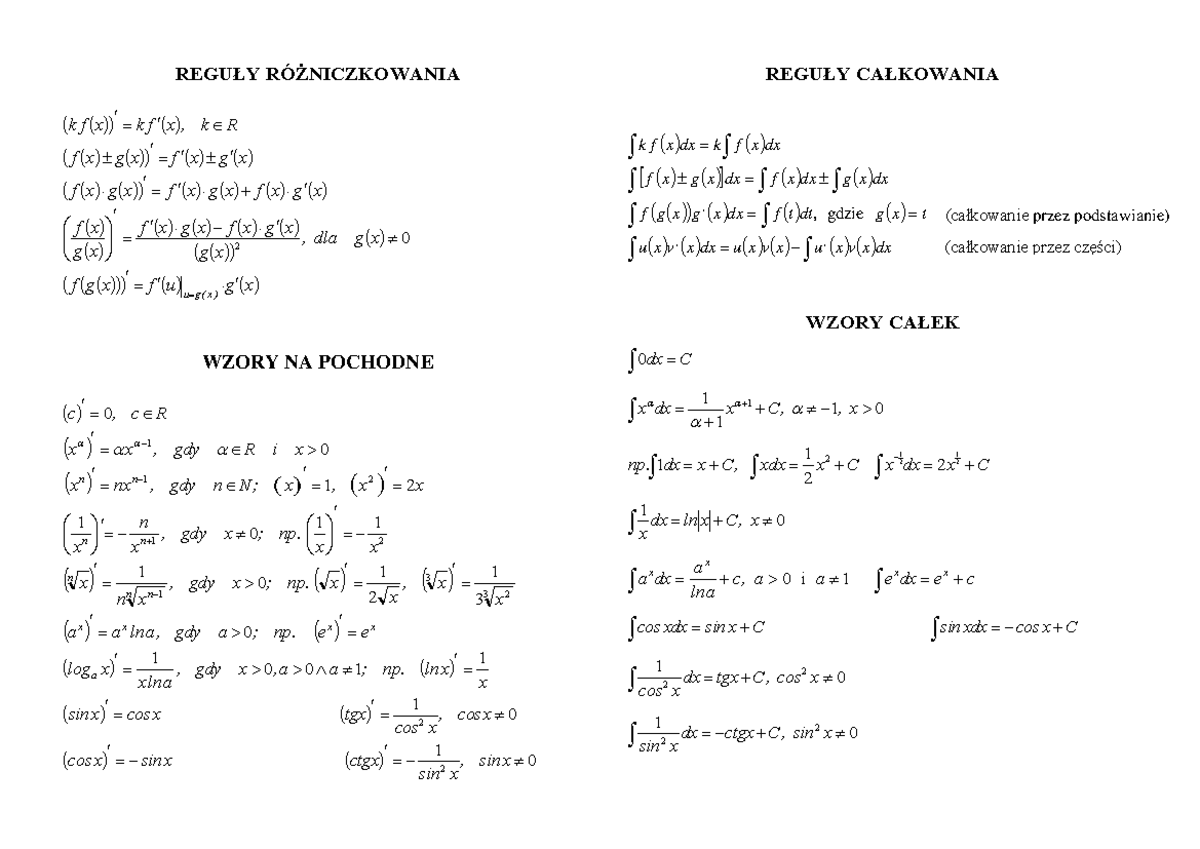 REGUŁY RÓŻNICZKOWANIA
(k f(x))′ = k f′(x), k ∈ R
(f(x) ± g(x))′ = f′(x) ± g′(x)
(f(x)· g(x))′ = f′(x)· g(x) + f(x)· g′(x)
(f(x)/g(x))′ = (f′(x)· g(x) − f(x)· g′(x))/(g(x))², dla g(x) ≠ 0
(f(g(x)))′ = f′(u)|u=g(x) ·g′(x)
WZORY NA POCHODNE
(c)′ = 0, c ∈ R
(x^α)′ = αx^(α−1), gdy α ∈ R i x > 0
(xⁿ)′ = nxⁿ⁻¹, gdy n ∈ N; (x)′ = 1, (x²)′ = 2x
(1/xⁿ)′ = −n/xⁿ⁺¹, gdy x ≠ 0; np. (1/x)′ = −1/x²
(ⁿ√x)′ = 1/(n ⁿ√(xⁿ⁻¹)), gdy x > 0; np. (√x)′ = 1/(2√x), (³√x)′ = 1/(3 ³√(x²))
(aˣ)′ = aˣ lna, gdy a > 0; np. (eˣ)′ = eˣ
(logₐ x)′ = 1/(xlna), gdy x > 0, a > 0 ∧ a ≠ 1; np. (lnx)′ = 1/x
(sinx)′ = cosx (tgx)′ = 1/(cos² x), cosx ≠ 0
(cosx)′ = − sinx (ctgx)′ = − 1/(sin² x), sinx ≠ 0
REGUŁY CAŁKOWANIA
∫k f(x)dx = k∫ f(x)dx
∫[f(x) ± g(x)]dx = ∫ f(x)dx ± ∫g(x)dx
∫ f(g(x))g'(x)dx = ∫ f(t)dt, gdzie g(x) = t (całkowanie przez podstawianie)
∫u(x)v'(x)dx = u(x)v(x) − ∫u'(x)v(x)dx (całkowanie przez części)
WZORY CAŁEK
∫0dx = C
∫x^α dx = 1/(α+1) x^(α+1) + C, α ≠ −1, x > 0
np.∫1dx = x + C, ∫xdx = 1/2 x² + C ∫x^(−1/2)dx = 2x^(1/2) + C
∫1/x dx = ln|x| + C, x ≠ 0
∫aˣdx = aˣ/lna + c, a > 0 i a ≠ 1 ∫eˣdx = eˣ + c
∫cosxdx = sinx + C ∫sinxdx = −cosx + C
∫1/(cos² x) dx = tgx + C, cos² x ≠ 0
∫1/(sin² x) dx = −ctgx + C, sin² x ≠ 0